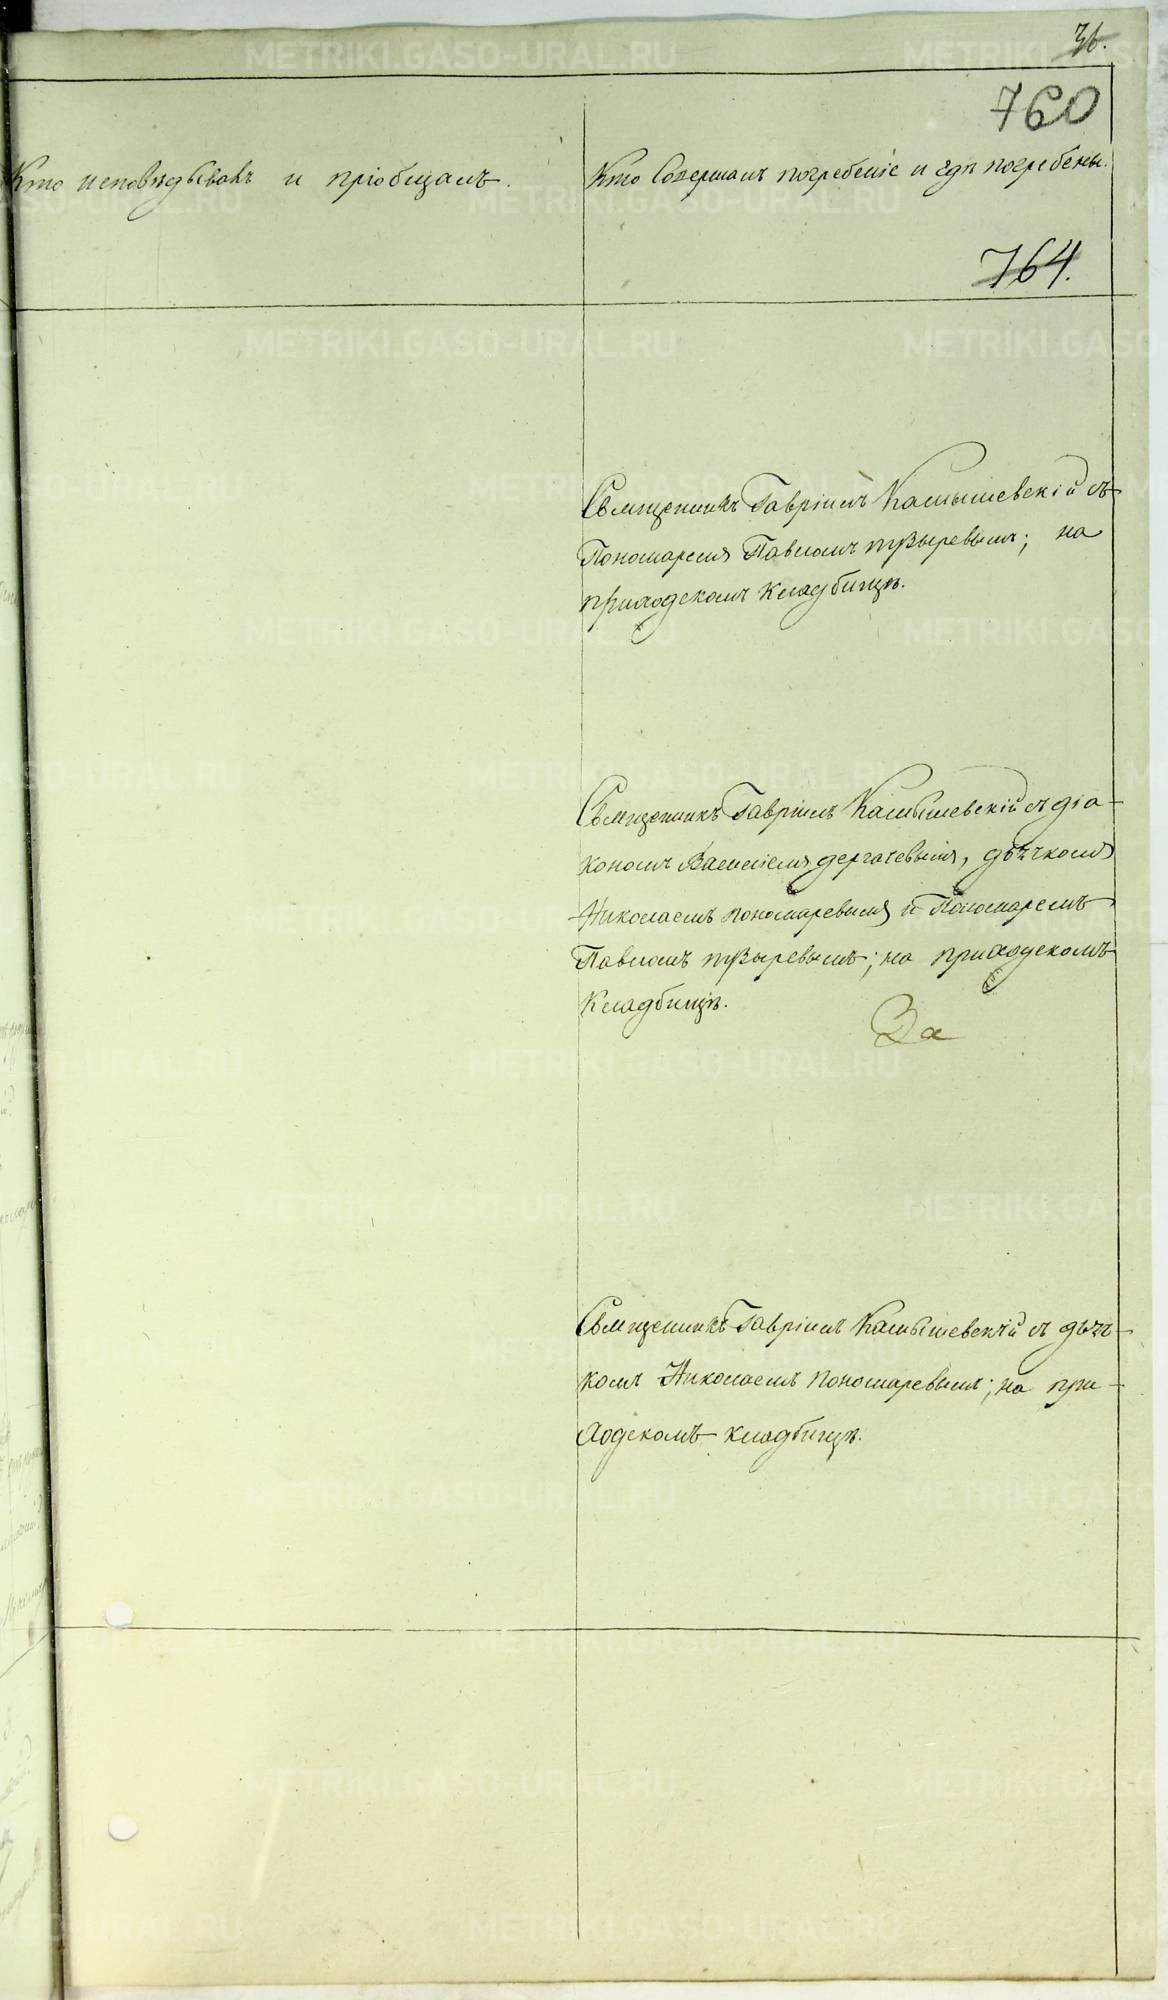 36.
760
Кто исповѣдывалъ и пріобщалъ.
Кто Совершалъ погребеніе и гдѣ погребены.
764.
Священникъ Гавріилъ Камышевскій съ
Пономаремъ Павломъ пузыревымъ; на
приходскомъ кладбищѣ.
Священникъ Гавріилъ Камышевскій съ діа-
кономъ Василіемъ дергачевымъ, дьячкомъ
Николаемъ пономаревымъ и Пономаремъ
Павломъ пузыревымъ; на приходскомъ
Кладбищѣ.
За
Священникъ Гавріилъ Камышевскій съ дьяч-
комъ Николаемъ пономаревымъ; на при-
ходскомъ кладбищѣ.
METRIKI.GASO-URAL.RU